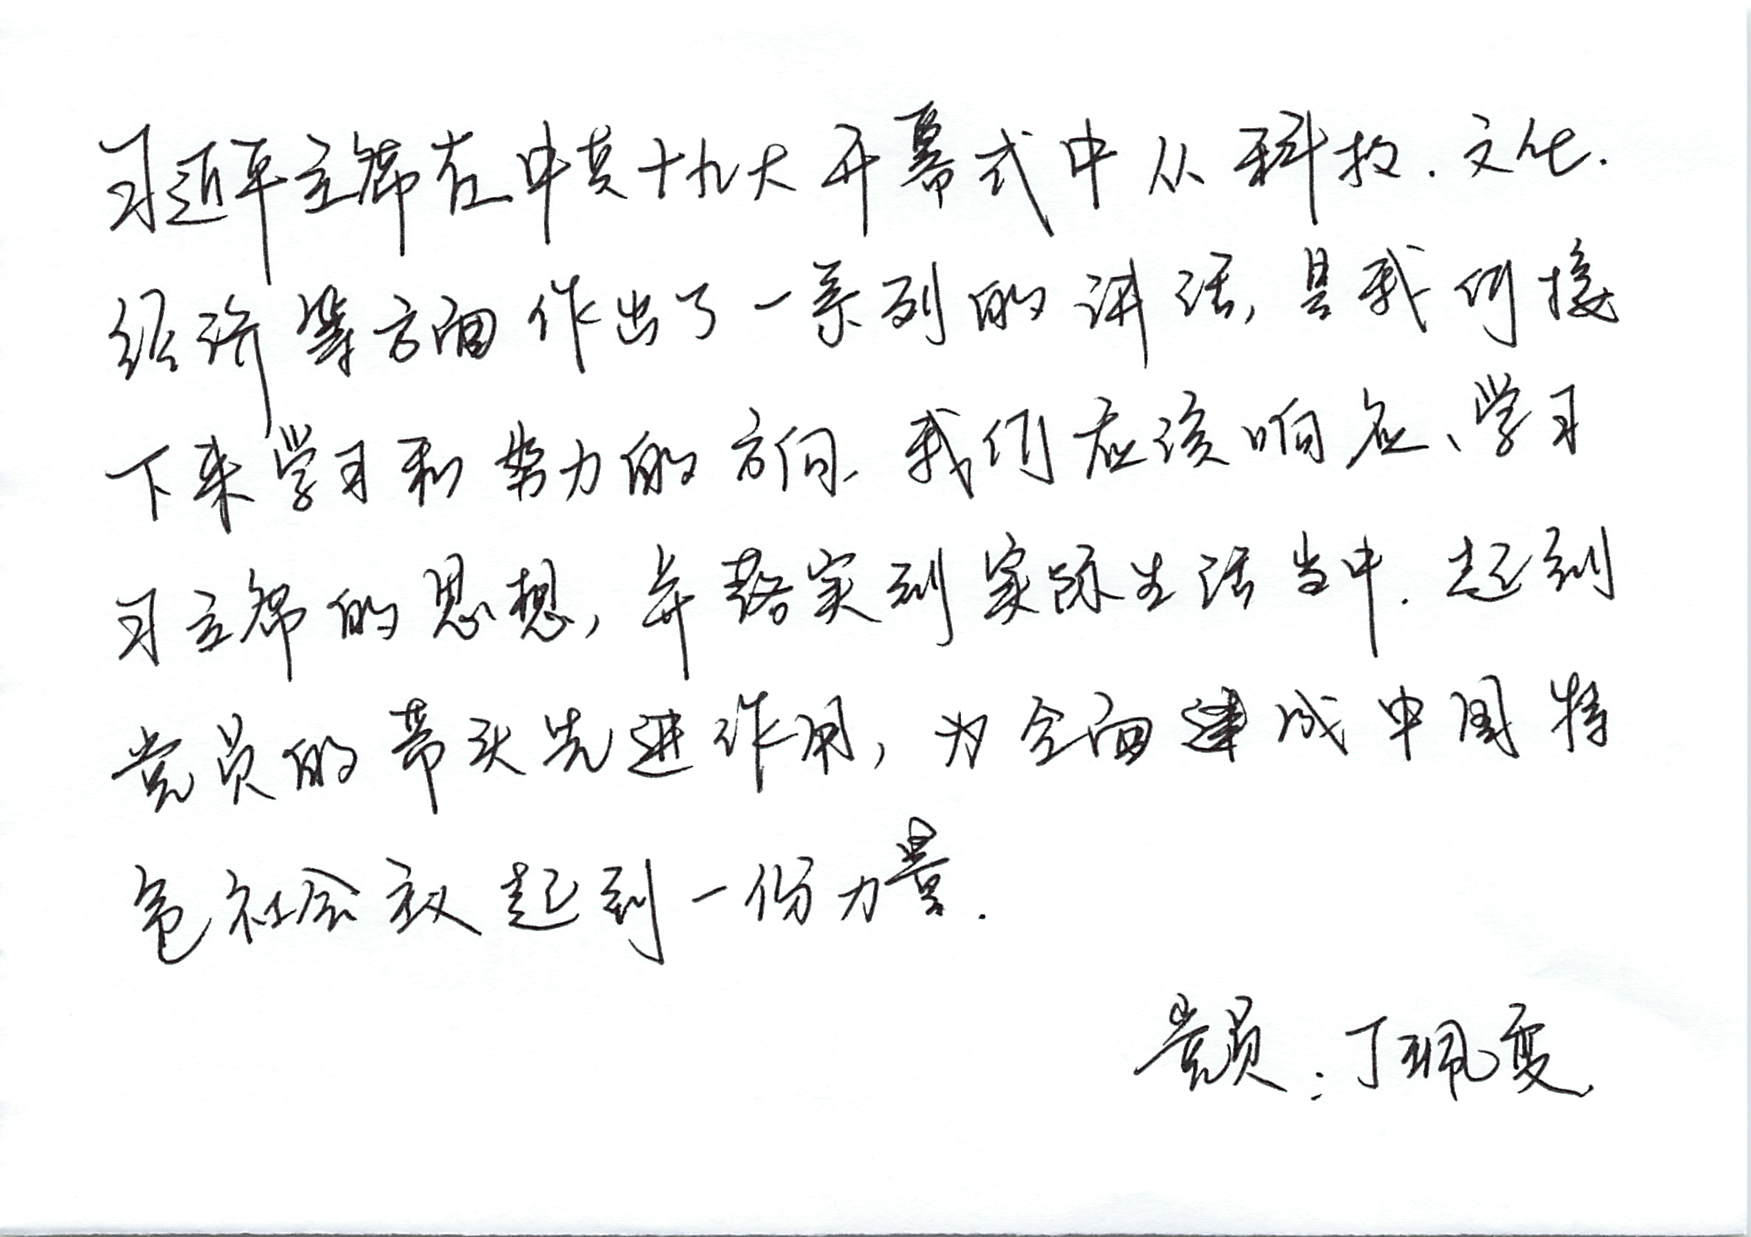 习近平主席在中共十九大开幕式中从科技.文化.
经济等方面作出了一系列的讲话,是我们接
下来学习和努力的方向.我们应该响应、学习
习主席的思想,并落实到实际生活当中.起到
党员的带头先进作用,为全面建成中国特
色社会义起到一份力量.
党员:丁珮雯